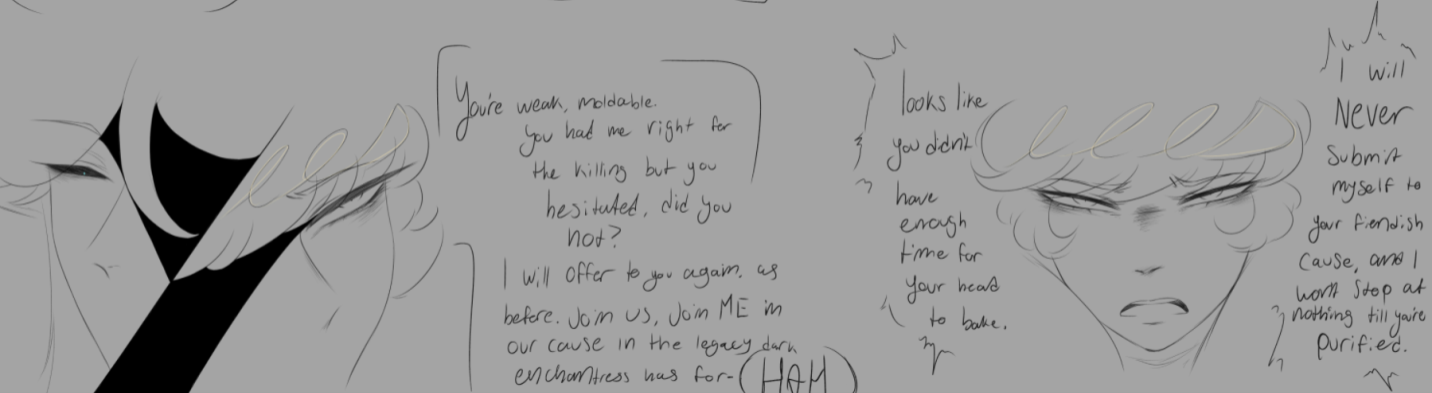 You're weak, moldable.
You had me right for
the killing but you
hesitated, did you
not?
I will offer to you again. as
before. Join us, Join ME in
our cause in the legacy dark
enchantress has for-
HAH
looks like
you didn't
have
enough
time for
your head
to bake.
I will
Never
Submit
myself to
your fiendish
cause, and I
won't stop at
nothing till you're
purified.